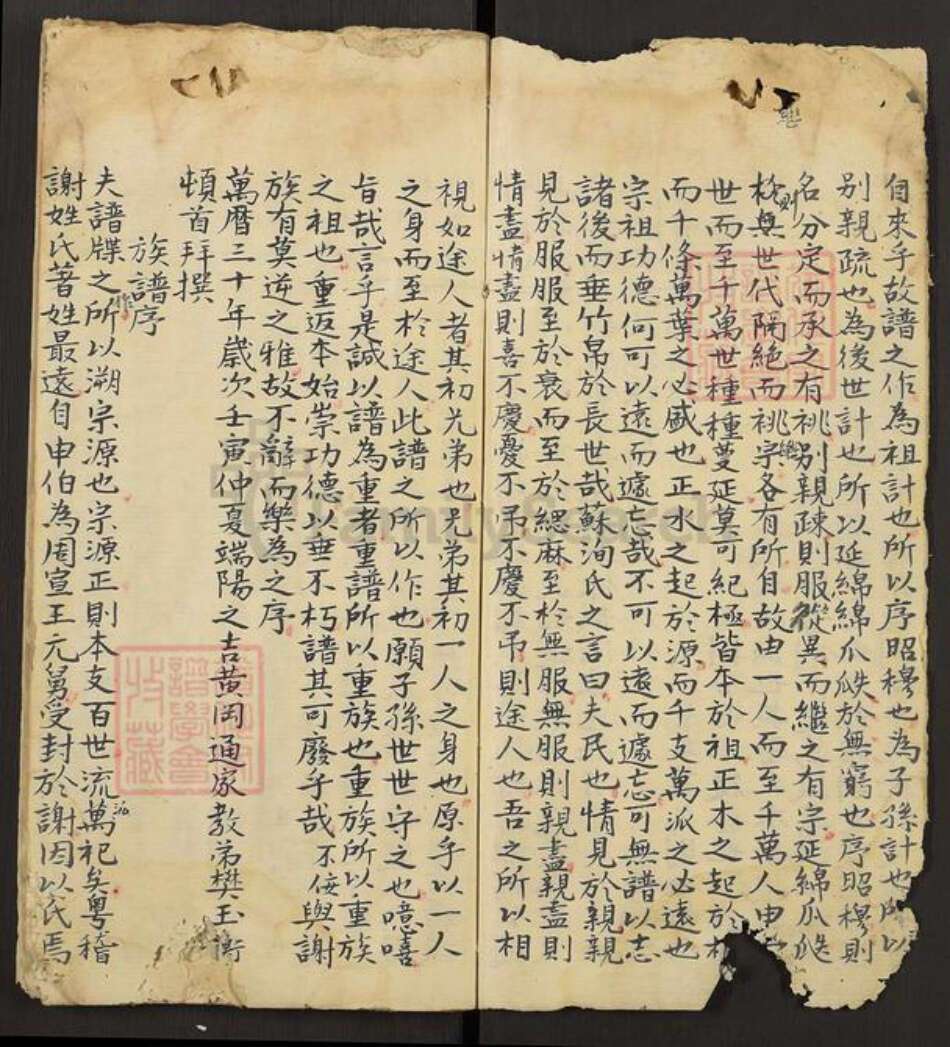 自來乎故譜之作為祖計也所以序昭穆也為子孫計也所以
别親疏也為後世計也所以延綿綿瓜瓞於無窮也序昭穆則
名分定而承之有祧别親疎則服從異而繼之有宗延綿瓜瓞
則與世代隔絶而祧宗各有所自故由一人而至千萬人由
世而至千萬世種種蔓延莫可紀極皆本於祖正木之起於
而千條萬葉之必盛也正水之起於源而千支萬派之必遠也
宗祖功德何可以遠而遽忘哉不可以遠而遽忘可無譜以志
諸後而垂竹帛於長世哉蘇洵氏之言曰夫民也情見於親親
見於服服至於衰而至於緦麻至於無服無服則親盡親盡則
情盡情盡則喜不慶憂不吊不慶不吊則途人也吾之所以相
視如途人者其初兄弟也兄弟其初一人之身也原乎以一人
之身而至於途人此譜之所以作也願子孫世世守之也噫嘻
旨哉言乎是誠以譜為重者重譜所以重族也重族所以重族
之祖也重返本始崇功德以垂不朽譜其可廢乎哉不佞與謝
族有莫逆之雅故不辭而樂為之序
萬曆三十年歲次壬寅仲夏端陽之吉黃岡通家教弟樊玉衡
頓首拜撰
族譜序
夫譜牒之所以溯宗源也宗源正則本支百世流萬祀矣粵稽
謝姓氏著姓最遠自申伯為周宣王元舅受封於謝因以氏焉